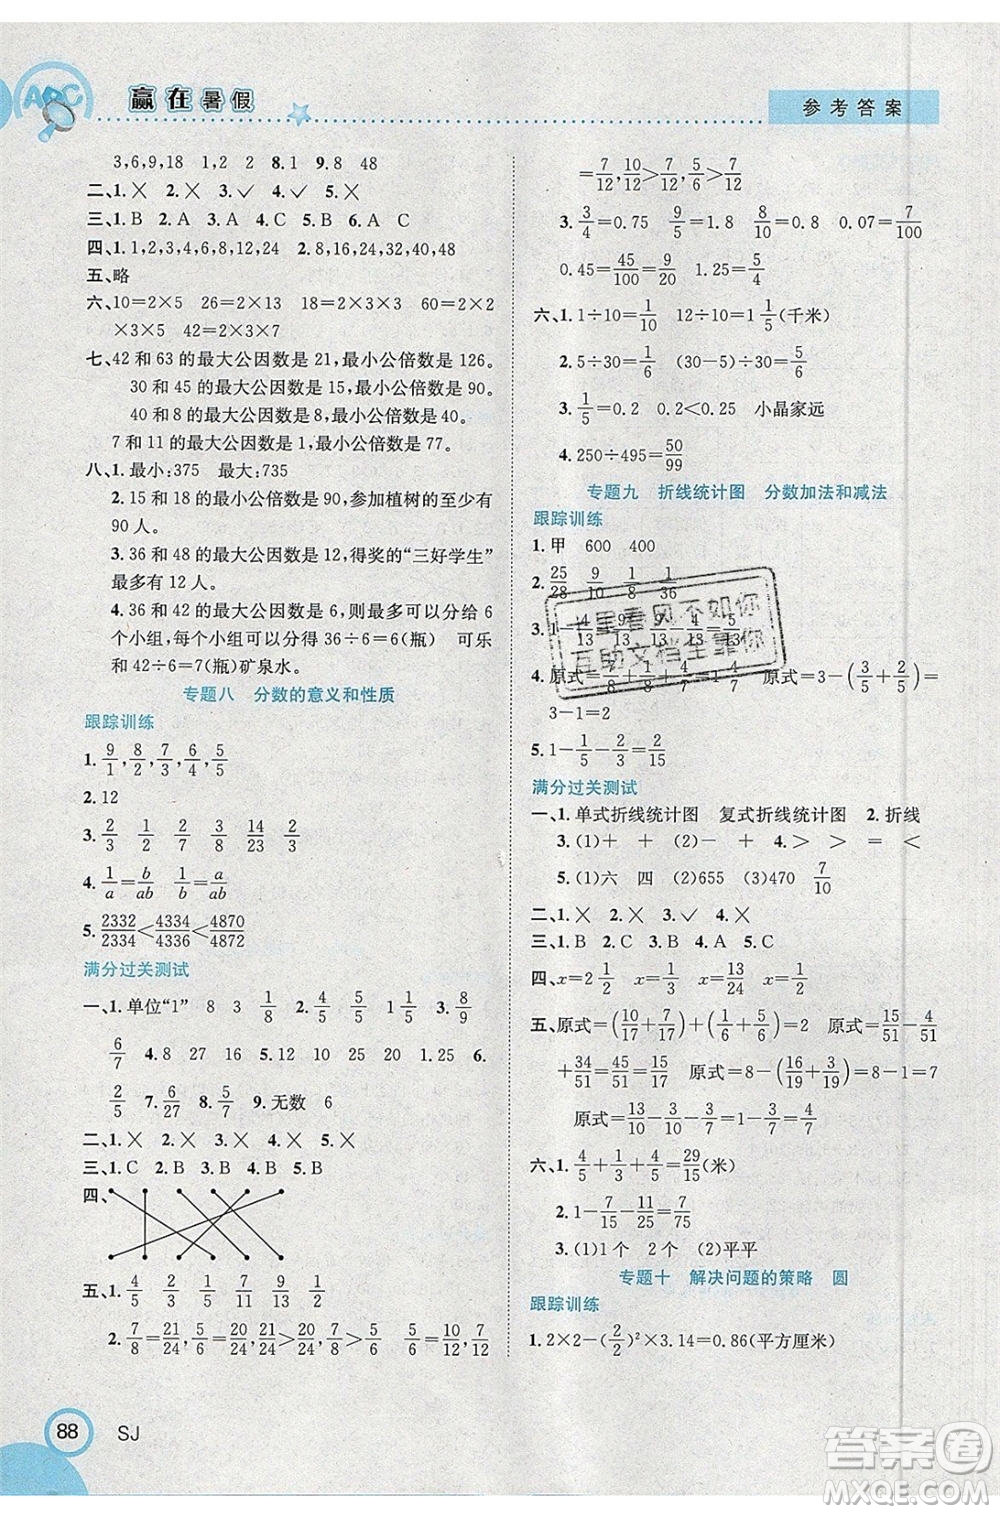 ABC
赢在暑假
参考答案
3,6,9,18　1,2　2　8.1　9.8　48
二、1.╳　2.╳　3.✓　4.✓　5.╳
三、1.B　2.A　3.A　4.B　5.B　6.A　C
四、1.1,2,3,4,6,8,12,24　2.8,16,24,32,40,48
五、略
六、10=2×5　26=2×13　18=2×3×3　60=2×2
×3×5　42=2×3×7
七、42 和 63 的最大公因数是 21,最小公倍数是 126。
30 和 45 的最大公因数是 15,最小公倍数是 90。
40 和 8 的最大公因数是 8,最小公倍数是 40。
7 和 11 的最大公因数是 1,最小公倍数是 77。
八、1.最小:375　最大:735
2.15 和 18 的最小公倍数是 90,参加植树的至少有
90 人。
3.36 和 48 的最大公因数是 12,得奖的“三好学生”
最多有 12 人。
4.36 和 42 的最大公因数是 6,最多可以分给 6
个小组,每个小组可以得 36÷6=6(瓶)　可乐
和 42÷6=7(瓶)矿泉水。
专题八　分数的意义和性质
跟踪训练
1. 9/1, 8/2, 7/3, 6/4, 5/5
2.12
3. 2/3　2/3　3/2　14/23　2/3
4. 1/a=b/ab　1/b=a/ab
5. 2332/2334<4334/4336<4870/4872
满分过关测试
一、1.单位“1”　8　3　1/8　2. 4/5　4/5　3. 8/9
6/7　4.8　27　16　5.12　10　25　20　1.25　6.
2/5　7. 6/27　8. 5/7　9.无数　6
二、1.╳　2.╳　3.╳　4.╳　5.╳
三、1.C　2.B　3.B　4.B　5.B
四、
五、1. 4/5　2/5　1/2　2/7　1/3　1/4
2. 7/8=21/24, 7/12=14/24　4/5=24/30, 5/6=25/30　4/6=8/12, 7/12
=7/12, 10/12>7/12, 5/6>7/12
3. 3/4=0.75　9/5=1.8　8/10=0.8　0.07=7/100
0.45=45/100=9/20　1.25=1 1/4
六、1.1÷10=1/10　12÷10=1 1/5(千米)
2.5÷30=1/6　(30-5)÷30=5/6
3. 1/5=0.2　0.2<0.25　小晶家远
4.250÷495=50/99
专题九　折线统计图　分数加法和减法
跟踪训练
1.甲　600　400
2. 25/28　9/10　1/8　1/36
4.
3-1=2
5.1-1/5-2/3=2/15
满分过关测试
一、1.单式折线统计图　复式折线统计图　2.折线
3.(1)+　+　(2)-　+　4.>　>　=　<
5.(1)六　四　(2)655　(3)470　7/10
二、1.╳　2.╳　3.✓　4.╳
三、1.B　2.B　3.B　4.A　5.C
四、x=2 1/2　x=1/4　x=13/24　x=1/12
五、原式=(10/17+7/17)+(1/6+5/6)=2　原式=15/51-4/51
+34/51=45/51　原式=8-(16/19+3/19)=8-1=7
原式=13/10-3/10-1/4=1-1/4=3/4
六、1. 4/5+1/3+4/5=29/15(米)
2.1-7/15-11/25=7/75
3.(1)1个　2个　(2)平平
专题十　解决问题的策略　圆
跟踪训练
1.2×2-(2/2)²×3.14=0.86(平方厘米)
十里春风不如你
互助文档全靠你
88
SJ
答案卷
MXQE.COM